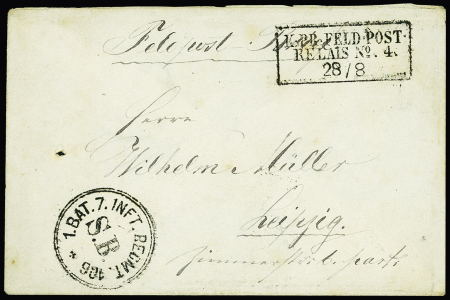 Feldpost Brief
K.PR.FELD-POST-
RELAIS No. 4.
28/8
Herrn
Wilhelm Müller
Leipzig.
1.BAT.7.INFT.REGMT.106
S.B.
part.